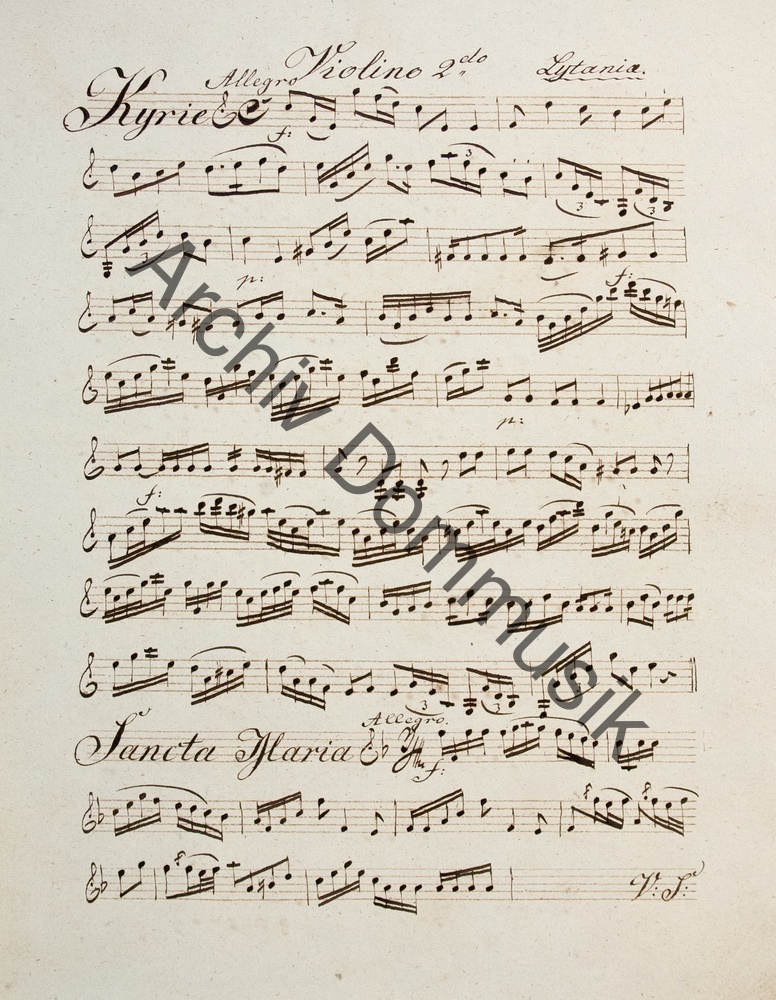 Violino 2do Lytaniæ.
Allegro
Kyrie
f:
3
3 3
3
p: f:
p:
f:
3 3
Allegro.
Sancta Maria
f:
V: S:
Archiv Dommusik